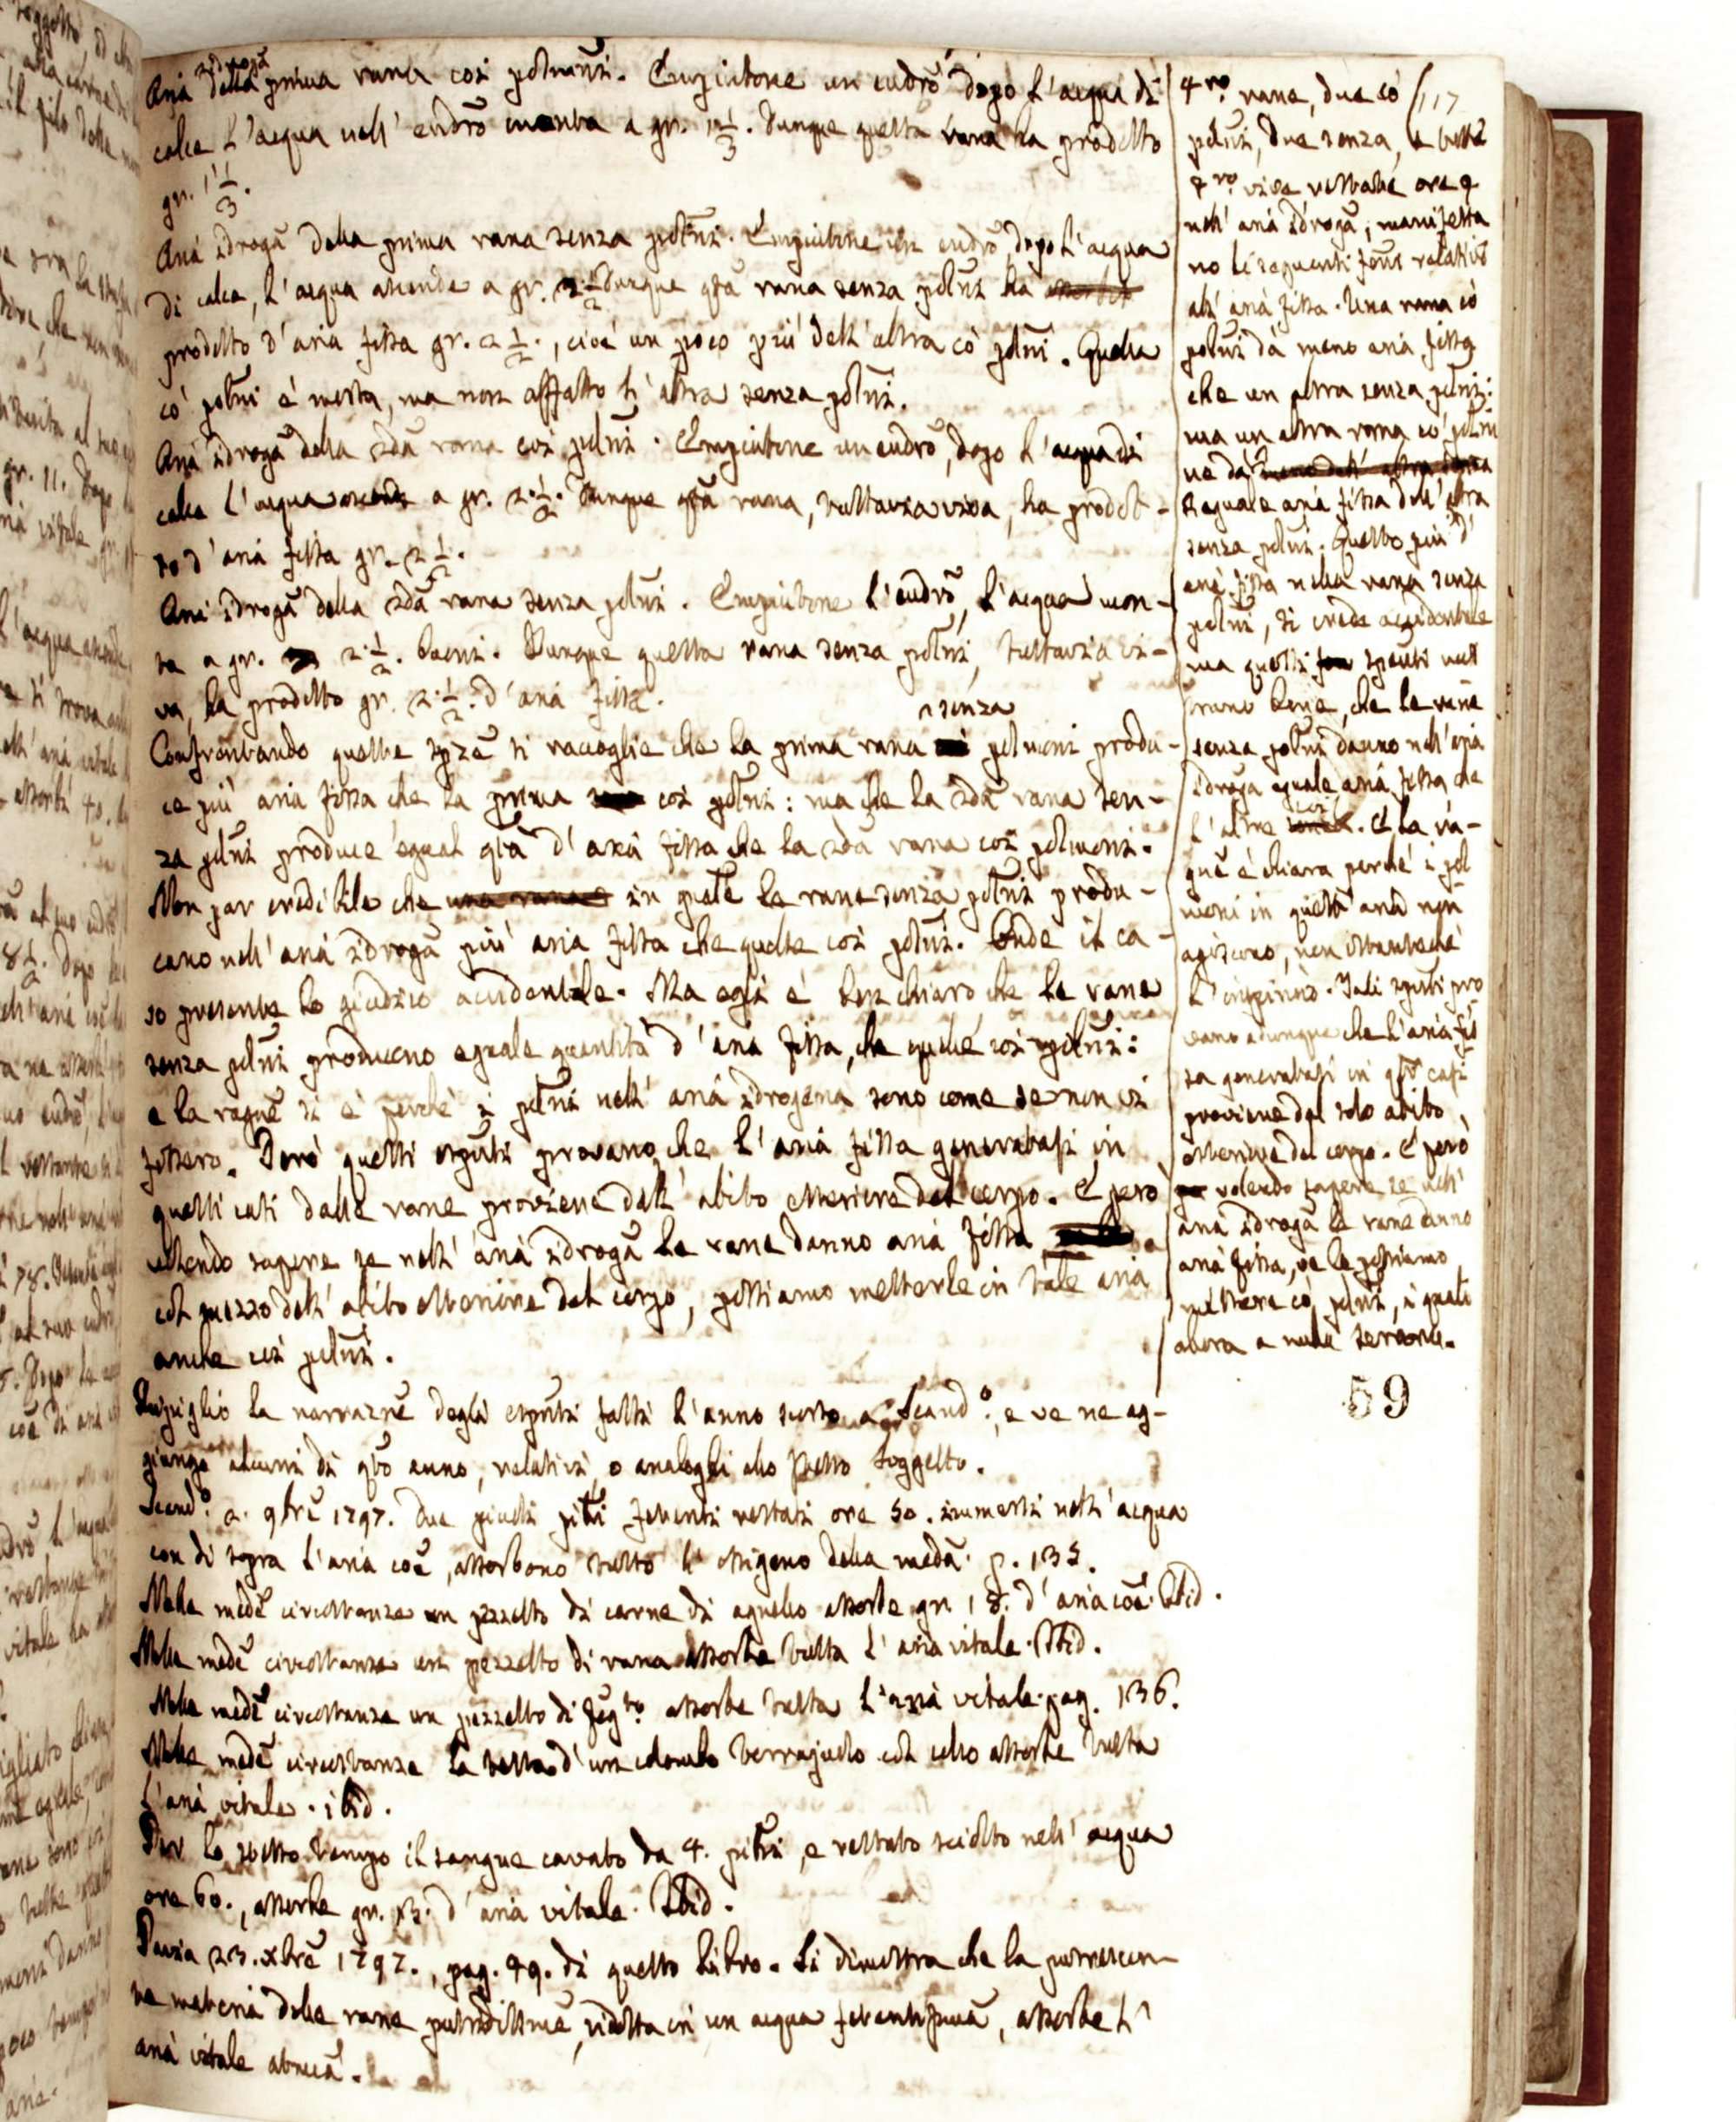 Aria idroga
della prima rana coi polmoni. Empiutone un eudro dopo l'acqua di
calce l'acqua nell' eudrõ monta a gr. 1 1/3. Dunque questa rana ha prodotto
gr. 1 1/3.
Aria idroga della prima rana senza polmi. Empiutone un eudrõ, dopo l'acqua
di calce, l'acqua ascende a gr. 2 1/2. Dunque qta rana senza polmi ha
prodotto d'aria fissa gr. 2 1/2., cioè un poco più dell'altra cò polmi. Quella
cò polmi è morta, ma non affatto l'altra senza polmi.
Aria idroga della 2da rana coi polmi. Empiutone un eudrõ, dopo l'acqua di
calce l'acqua ascende a gr. 2 1/2. Dunque qta rana, tuttavia viva, ha prodot-
to d'aria fissa gr. 2 1/2.
Aria idroga della 2da rana senza polmi. Empiutone l'eudrõ, l'acqua mon-
ta a gr. 2 1/2. Dunque questa rana senza polmi, tuttavia vi-
va, ha prodotto gr. 2 1/2. d'aria fissa.
senza
Confrontando queste spze si raccoglie che la prima rana polmoni produ-
ce più aria fissa che la prima coi polmi: ma che la 2da rana sen-
za polmi produce egual qtà d'aria fissa che la 2da rana coi polmoni.
Non par credibile che una rana in gnãle le rane senza polmi produ-
cano nell'aria idroga più aria fissa che quelle coi polmi. Onde il ca-
so presente lo giudico accidentale. Ma egli è ben chiaro che le rane
senza polmi producono eguale quantità d'aria fissa, che quelle coi polmi:
e la ragnẽ si è perchè i polmi nell'aria idrogena sono come se non vi
fossero. Però questi spmti provano che l'aria fissa generatasi in
questi casi dalle rane proviene dall'abito esteriore del corpo. E però
volendo sapere se nell'aria idroga le rane danno aria fissa
col mezzo dell'abito esteriore del corpo, possiamo metterle in tale aria
anche coi polmi.
Ripiglio la narrazne degli spmti fatti l'anno scorso a Scando., e ve ne ag-
giungo alcuni di qto anno, relativi o analoghi allo stesso soggetto.
Scando. a. 9bre 1797. Due piccoli pesci fetenti restati ore 50. immersi nell'acqua
con di sopra l'aria coẽ, assorbono tutto l'ossigeno della meda. p. 135.
Nelle mede circostanze un pezzetto di carne di agnello assorbe gr. 18. d'aria coẽ. Ibid.
Nelle mede circostanze un pezzetto di rana assorbe tutta l'aria vitale. Ibid.
Nelle mede circostanze un pezzetto di fegto. assorbe tutta l'aria vitale. pag. 136.
Nelle mede circostanze la testa d'un colombo terrajuolo col collo assorbe tutta
l'aria vitale. ibid.
Per lo stesso tempo il sangue cavato da 4. pesci, e restato sciolto nell'acqua
ore 60., assorbe gr. 13. d'aria vitale. Ibid.
Pavia 23. xbre 1797., pag. 49. di questo libro. Si dimostra che la putrescen-
te materia delle rane, ridotta in un acqua fetentissma, assorbe l'
aria vitale
117
4ro. rane, due cò
polmi, due senza, e tutte
4ro. vive restate ore 9
nell'aria idroga, manifesta
no li seguenti fenni relativi
all'aria fissa. Una rana cò
polmi dà meno aria fissa
che un altra senza polmi:
ma un altra rana cò polmi
ne dà meno dell'altra senza
eguale aria fissa dell'altra
senza polmi. Questo più d'
aria fissa nella rana senza
polmi, si crede accidentale
ma questi spmti mos
trano bene, che le rane
senza polmi danno nell'aria
idroga eguale aria fissa che
l'altre coi. E la ra-
gnẽ è chiara perchè i pol
moni in questa aria non
agiscono, non ostantechè
l'inspirino. Tali spmti pro
vano adunque che l'aria fis
sa generatasi in qti casi
proviene dal solo abito
esteriore del corpo. E però
volendo sapere se nell'
aria idroga le rane danno
aria fissa, ve le possiamo
mettere cò polmi, i quali
allora a nulla servono.
59